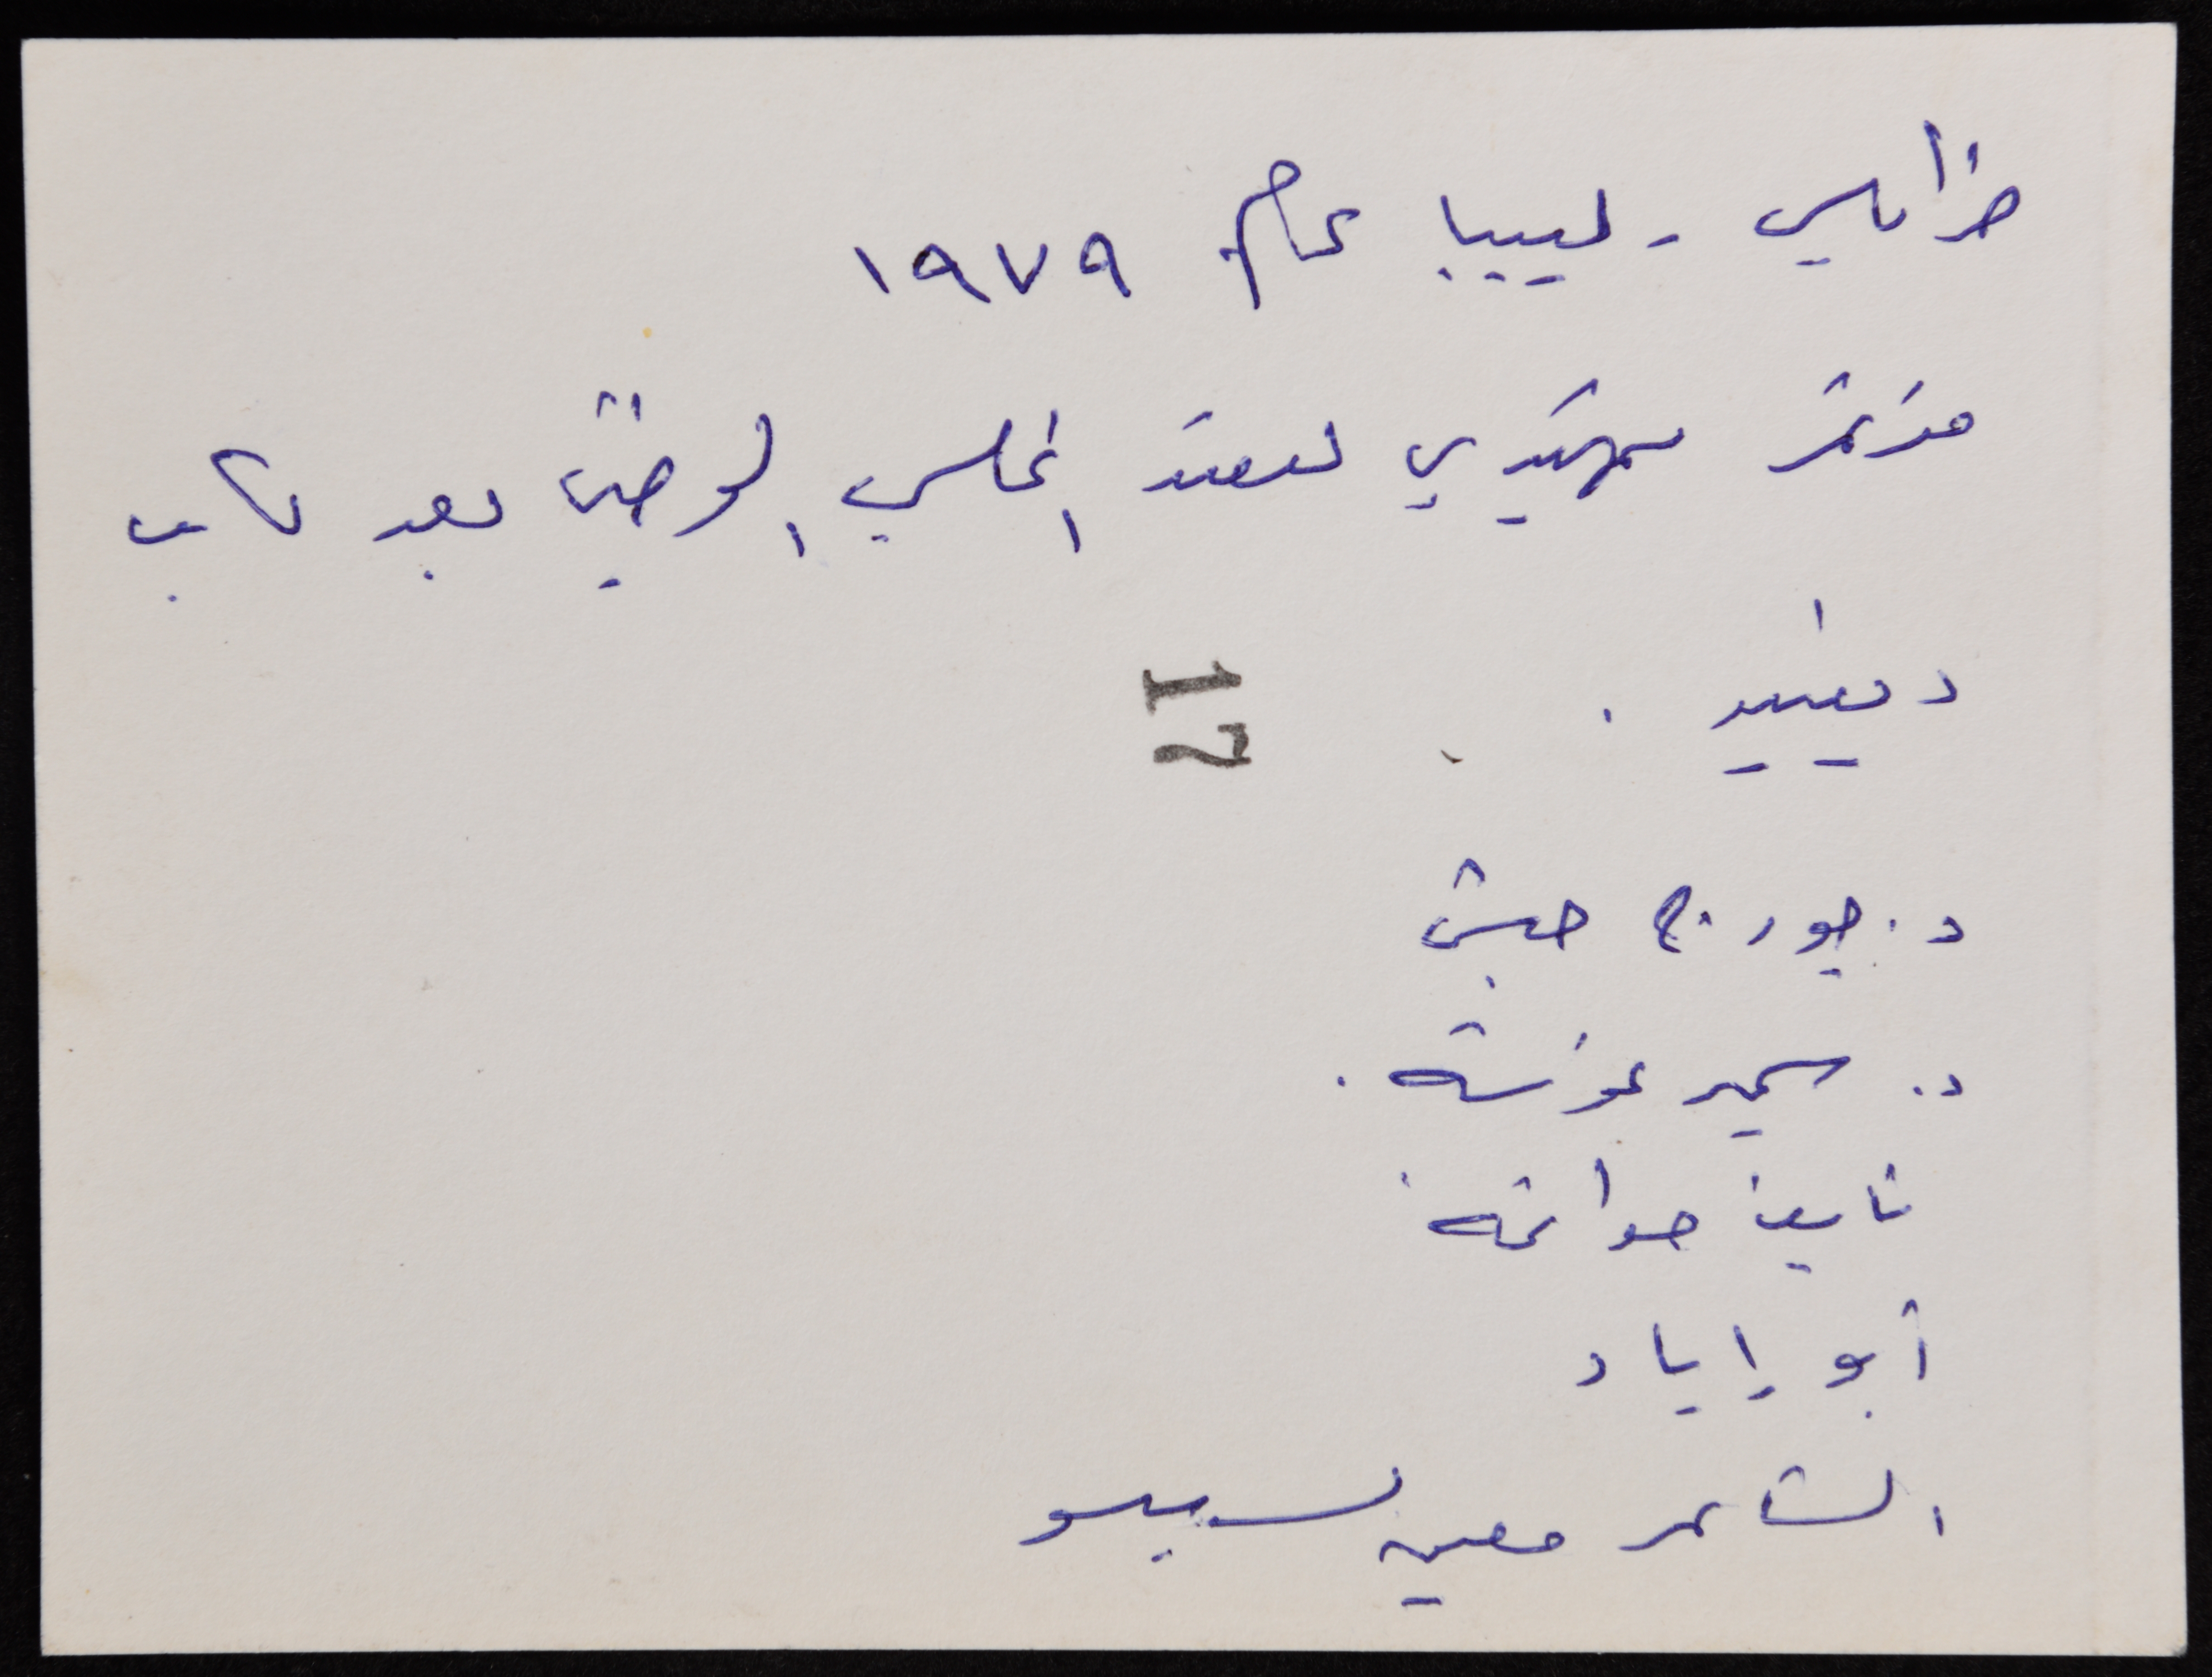 طرابلس - ليبيا عام ١٩٧٩
مؤتمر تمهيدي لعقد المجلس الوطني بعد كامب
دیفید .
17
د. جورج حبش
د. سمير غوشه .
نايف حواتمه
أبو إياد
الشاعر معين بسيسو